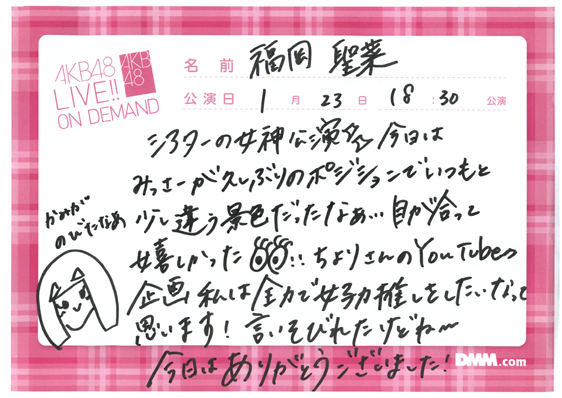 AKB48
LIVE!!
ON DEMAND
AKB
48
名前 福岡 聖菜
公演日 1月 23日 18:30 公演
シアターの女神公演 今日は
みっさーが久しぶりのポジションでいつもと
少し違う景色だったなぁ… 目が合って
嬉しかった !! ちよりさんのYouTubeの
企画 私は全力で 推しをしたいなって
思います! 言いそびれたけどね〜
今日はありがとうございました!
かみが
のびたなあ
DMM.com